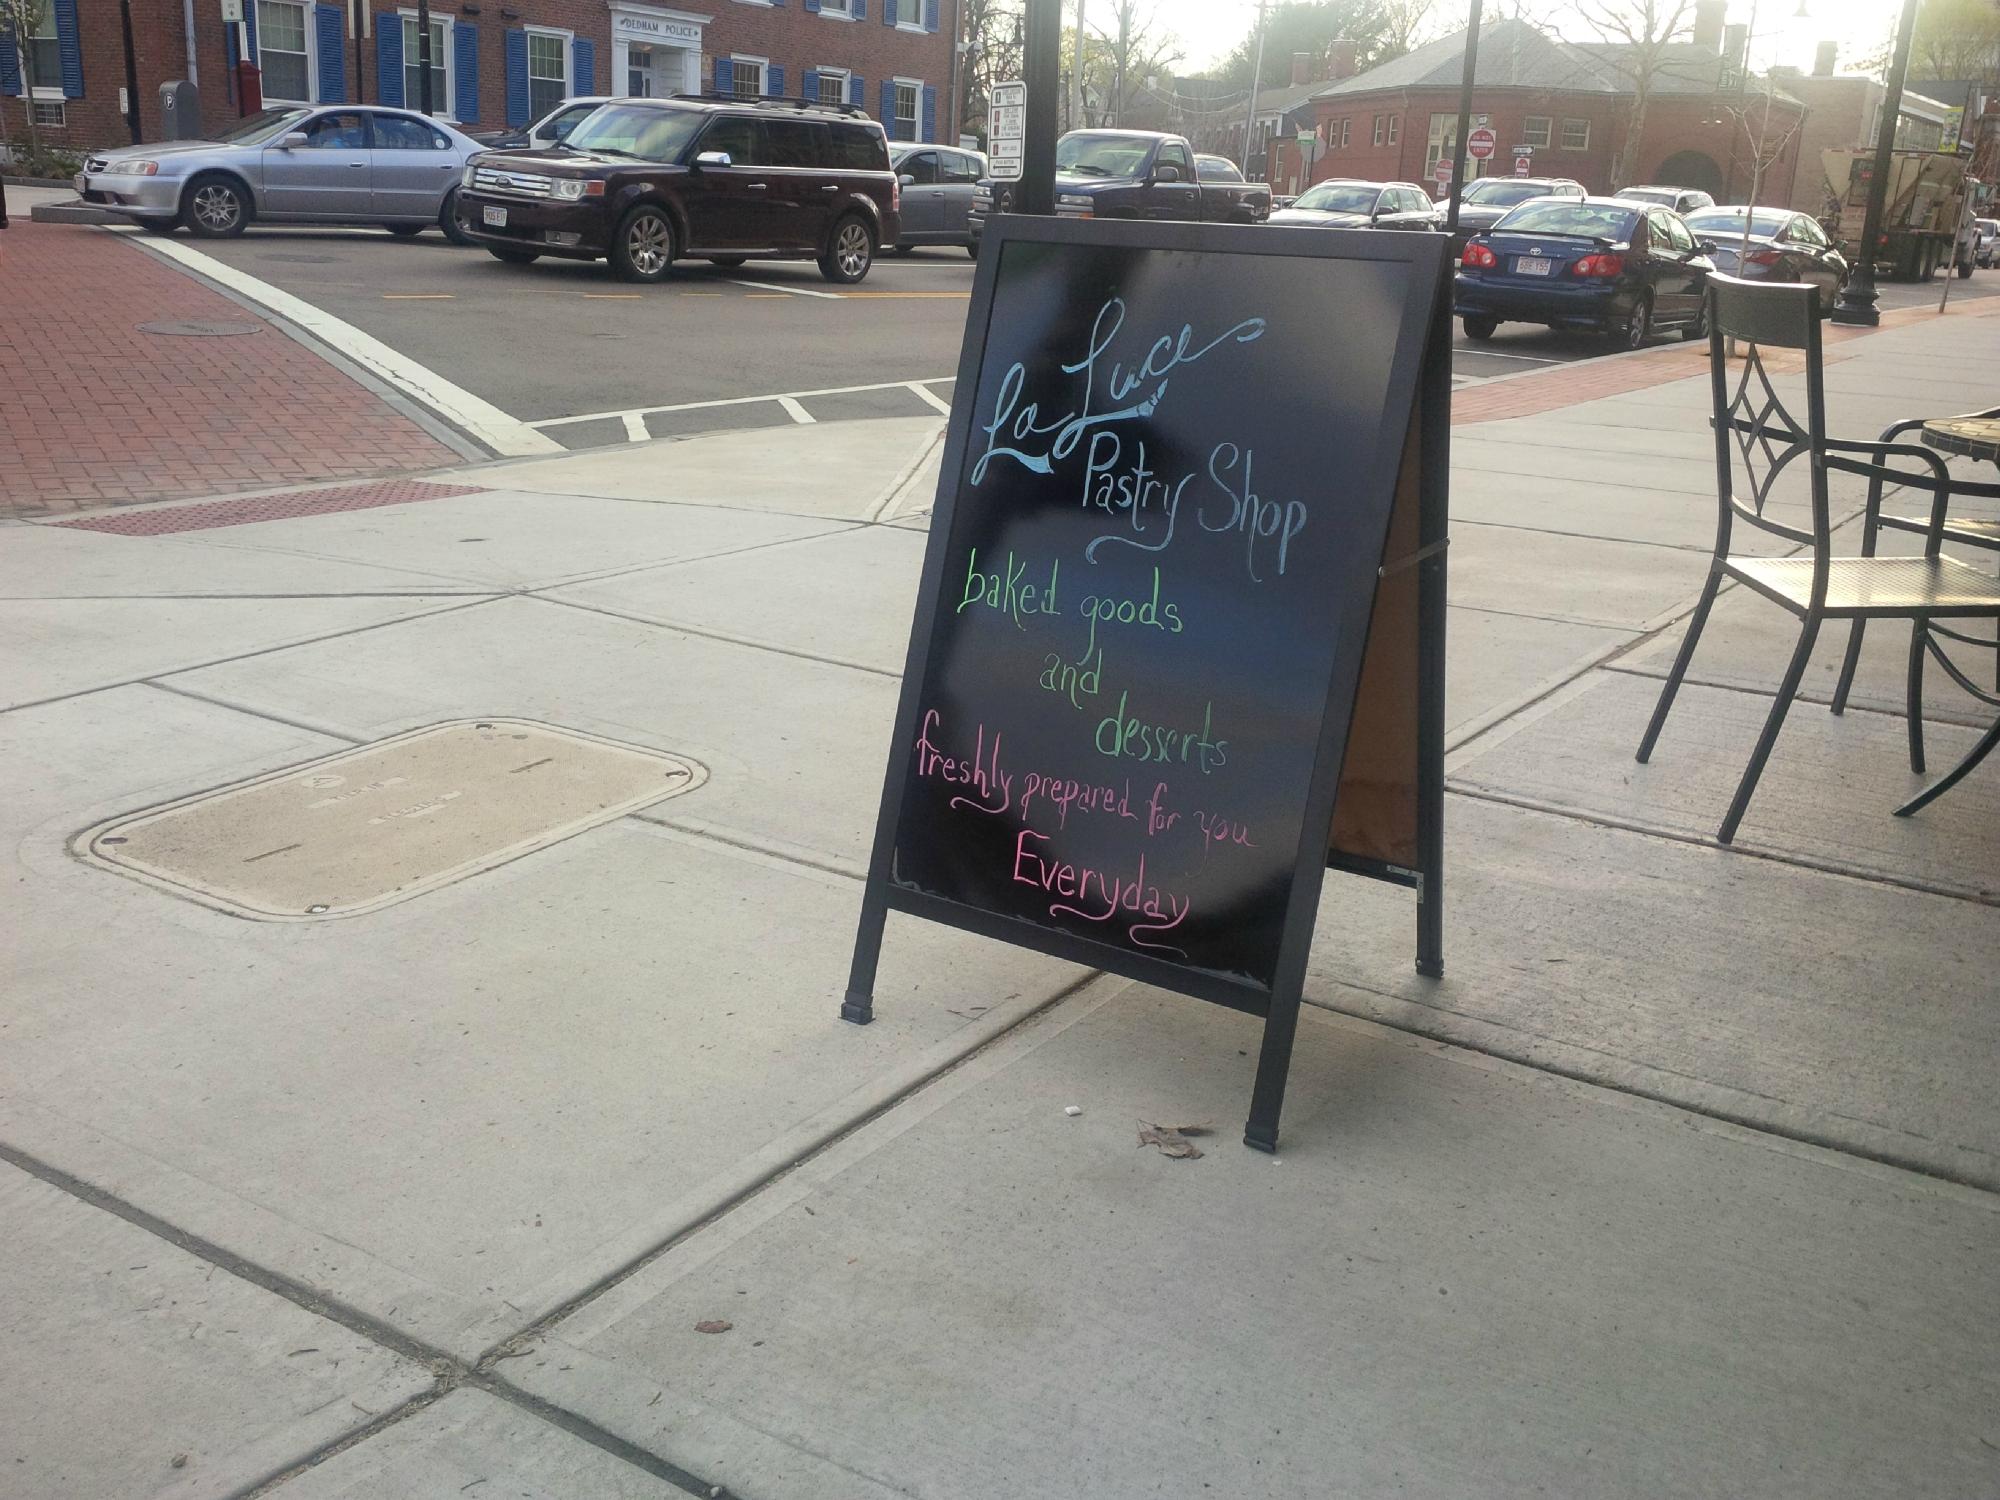 DEDHAM POLICE
La Luce
Pastry Shop
baked goods
and
desserts
freshly prepared for you
Everyday
DO NOT
ENTER